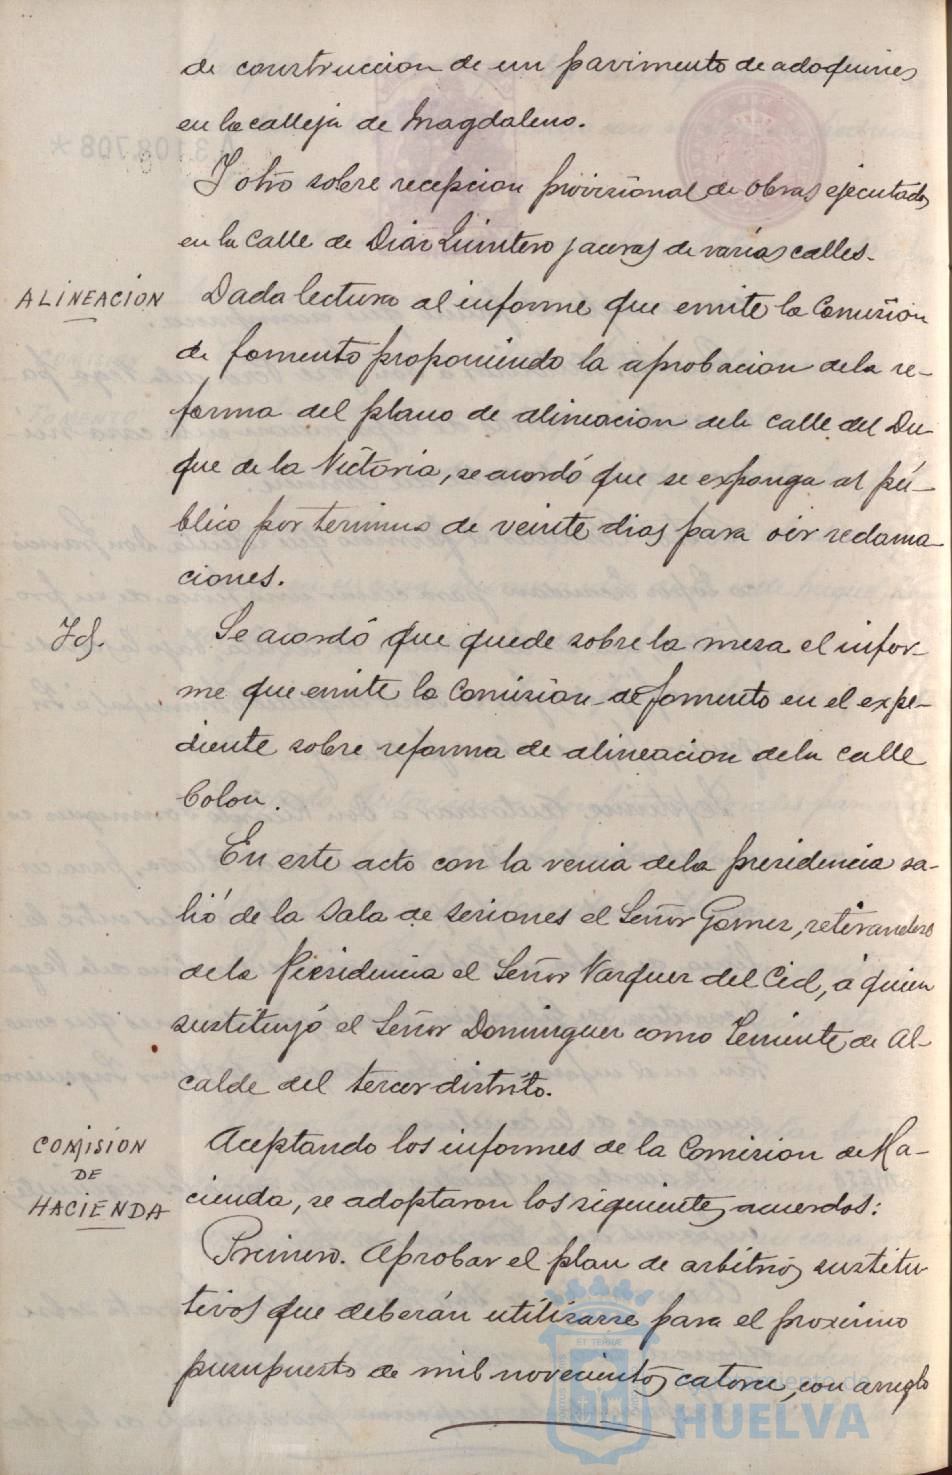 de construccion de un pavimento de adoquines
en la calleja de Magdaleno.
Y otro sobre recepcion provisional de obras ejecutadas
en la Calle de Diaz Quintero y aceras de varias calles.
ALINEACION
Dada lectura al informe que emite la Comision
de fomento proponiendo la aprobacion de la re-
forma del plano de alineacion de la calle del Du-
que de la Victoria, se acordó que se exponga al pú-
blico por termino de veinte dias para oir reclama-
ciones.
Id.
Se acordó que quede sobre la mesa el infor-
me que emite la Comision de fomento en el expe-
diente sobre reforma de alineacion de la calle
Colon.
En este acto con la venia de la presidencia sa-
lió de la Sala de sesiones el Señor Gomez, retirandose
de la Presidencia el Señor Vazquez del Cid, á quien
sustituyó el Señor Dominguez como Teniente de Al-
calde del tercer distrito.
COMISION
DE
HACIENDA
Aceptando los informes de la Comision de Ha-
cienda, se adoptaron los siguientes acuerdos:
Primero. Aprobar el plan de arbitrios sustitu-
tivos que deberán utilizarse para el proximo
presupuesto de mil novecientos catorce, con arreglo
Ayuntamiento de
HUELVA